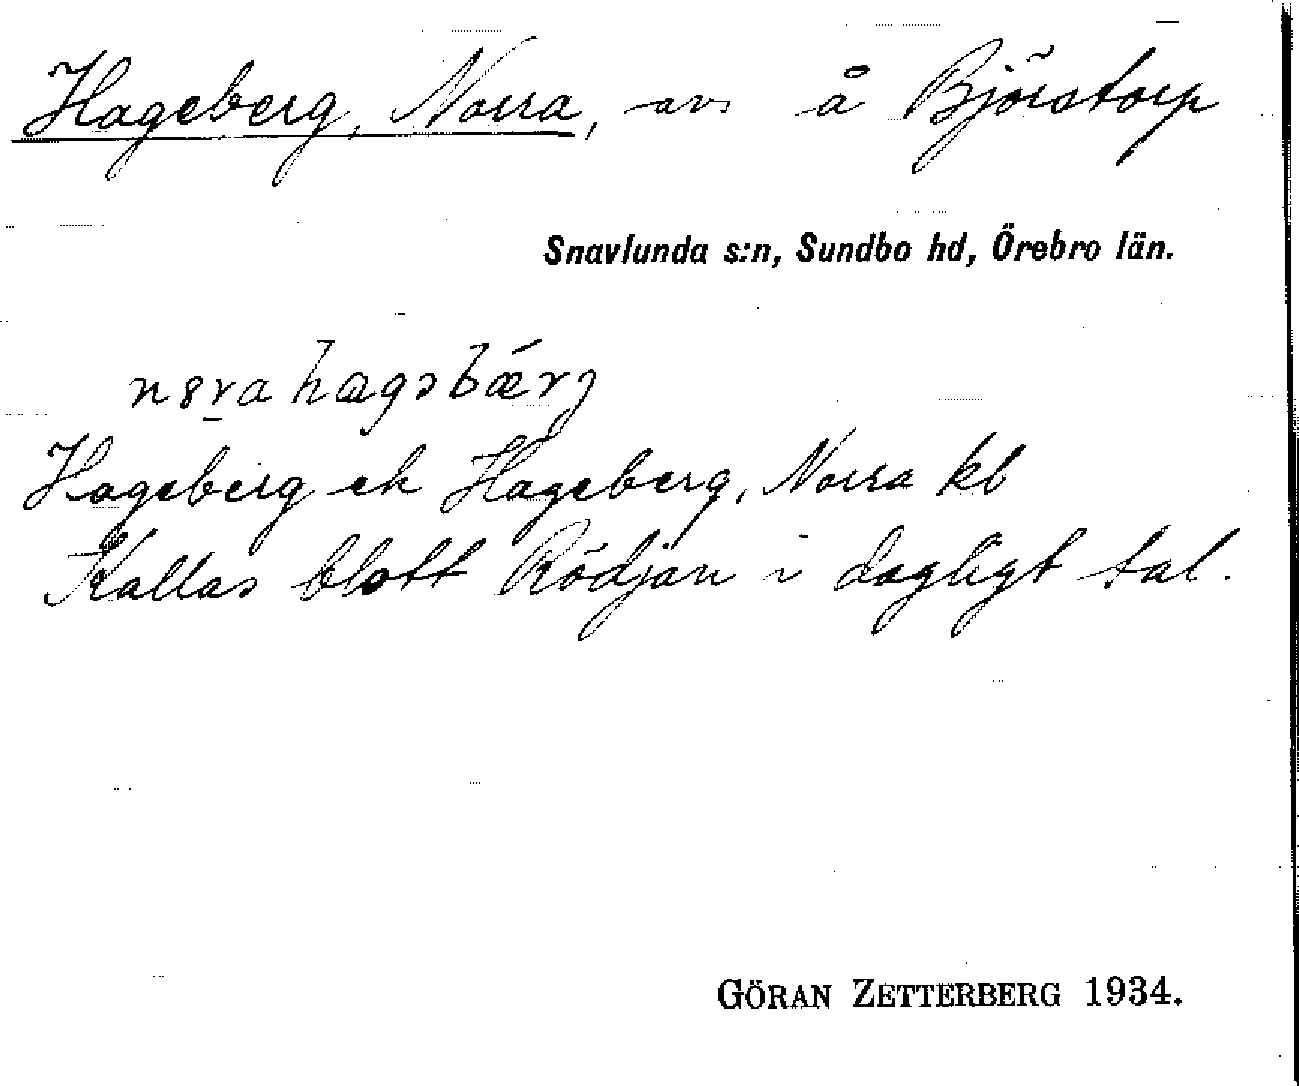 Hageberg, Norra, avs å Björstorp
Snavlunda s:n, Sundbo hd, Örebro län.
Hageberg ek Hageberg, Norra kb
Kallas blott Rödjan i dagligt tal.
GÖRAN ZETTERBERG 1934.